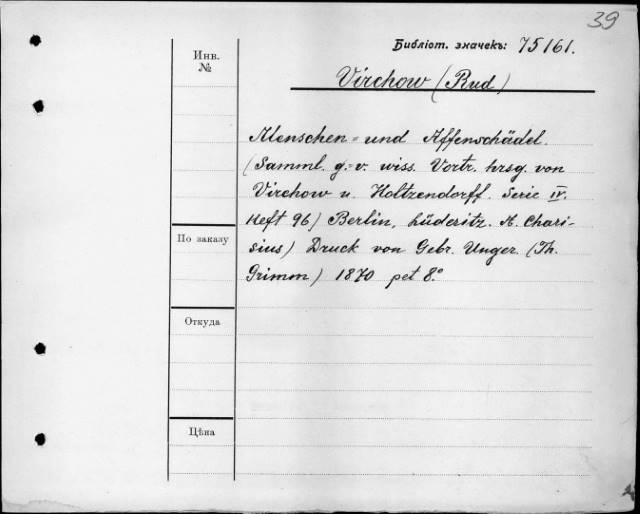 39
Библіот. значекъ: 75161.
Инв.
№
Virchow (Rud)
Menschen- und Affenschädel.
(Samml. g.-v. wiss. Vortr. hrsg. von
Virchow u. Holtzendorff. Serie IV.
Heft 96) Berlin, Lüderitz. A. Chari-
sius) Druck von Gebr. Unger (Th.
Grimm) 1870 pet 8.º
По заказу
Откуда
Цѣна